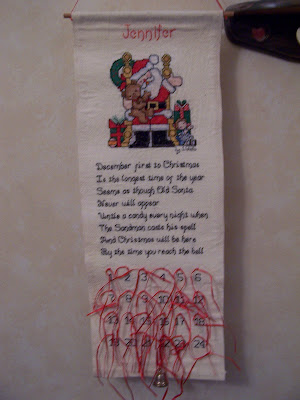 Jennifer
December first to Christmas
Is the longest time of the year
Seems as though Old Santa
Never will appear
Untie a candy every night when
The Sandman casts his spell
And Christmas will be here
By the time you reach the bell
2 3 4 5 6
7 8 9 10 11 12
13 14 15 16 17 18
19 20 21 22 23 24